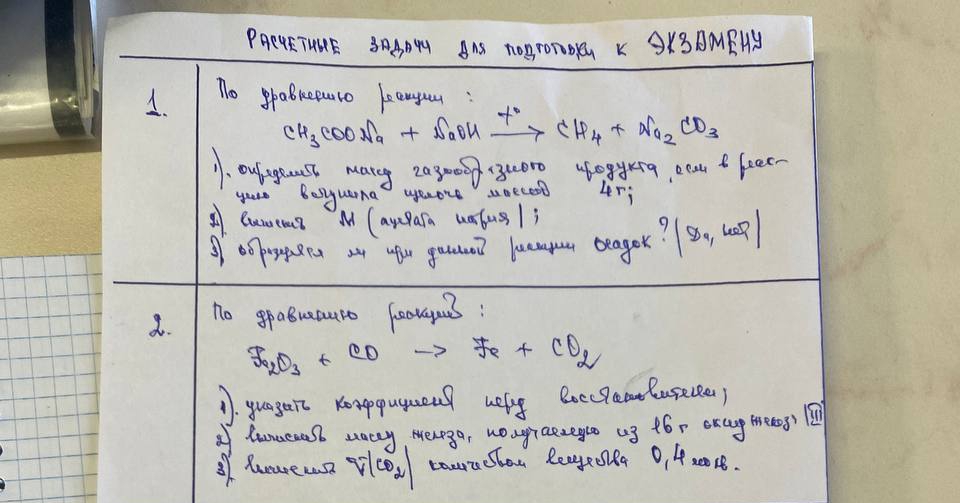 РАСЧЕТНЫЕ ЗАДАЧИ ДЛЯ ПОДГОТОВКИ К ЭКЗАМЕНУ
1.
По уравнению реакции :
CH₃COONa + NaOH —t°→ CH₄ + Na₂CO₃
1). определить массу газообразного продукта, если в реак-
цию вступила щелочь массой 4 г;
2). вычислить M (ацетата натрия);
3) образуется ли при данной реакции осадок? (Да, нет)
2.
По уравнению реакции :
Fe₂O₃ + CO → Fe + CO₂
1). указать коэффициент перед восстановителем;
2) вычислить массу железа, получаемую из 16 г оксид железа III
3) вычислить V(CO₂) количеством вещества 0,4 моль.